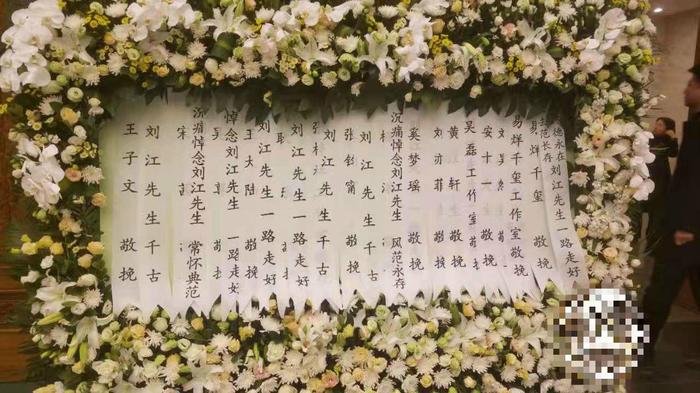 德永在刘江先生一路走好
范长存
易烊千玺 敬挽
易烊千玺工作室 敬挽
安十一 敬挽
吴磊工作室 敬
黄轩 敬挽
刘亦菲 敬
奚梦瑶 敬挽
沉痛悼念刘江先生 风范永存
刘江先生千古
张钧甯 敬挽
刘江先生千古
刘江先生一路走好
刘江先生一路走好
王大陆 敬挽
悼念刘江先生 一路走好
沉痛悼念刘江先生 常怀典范
刘江先生千古
王子文 敬挽